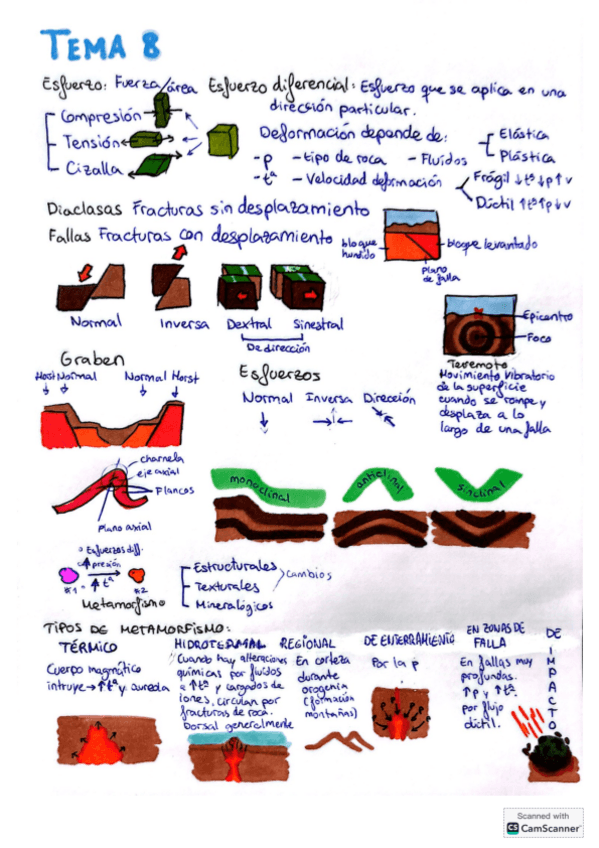 TEMA 8
Esfuerzo: Fuerza/área
Esfuerzo diferencial: Esfuerzo que se aplica en una
dirección particular.
Compresión
Tensión
Cizalla
Deformación depende de:
- P - tipo de roca - Fluidos
- tª - Velocidad deformación
Elástica
Plástica
Frágil ↓tª↓p↑v
Dúctil ↑tª↑p↓v
Diaclasas Fracturas sin desplazamiento
Fallas Fracturas con desplazamiento
bloque
hundido
bloque levantado
plano
de falla
Normal Inversa Dextral Sinestral
De dirección
Epicentro
Foco
Terremoto
Movimiento vibratorio
de la superficie
cuando se rompe y
desplaza a lo
largo de una falla
Graben
Horst Normal Normal Horst
Esfuerzos
Normal Inversa Dirección
charnela
eje axial
flancos
Plano axial
monoclinal
anticlinal
sinclinal
Esfuerzos diff.
↑presión
↑tª
Metamorfismo
Estructurales
Texturales
Mineralógicos
cambios
TIPOS DE METAMORFISMO:
TÉRMICO
Cuerpo magmático
intruye→↑tª y aureola
HIDROTERMAL
Cuando hay alteraciones
químicas por fluidos
a ↑tª y cargados de
iones. Circulan por
fracturas de roca.
Dorsal generalmente
REGIONAL
En corteza
durante
orogenia
(formación
montañas)
DE ENTERRAMIENTO
Por la p
EN ZONAS DE
FALLA
En fallas muy
profundas.
↑p y ↑tª.
por flujo
dúctil.
DE
IMPACTO
Scanned with
CS CamScanner